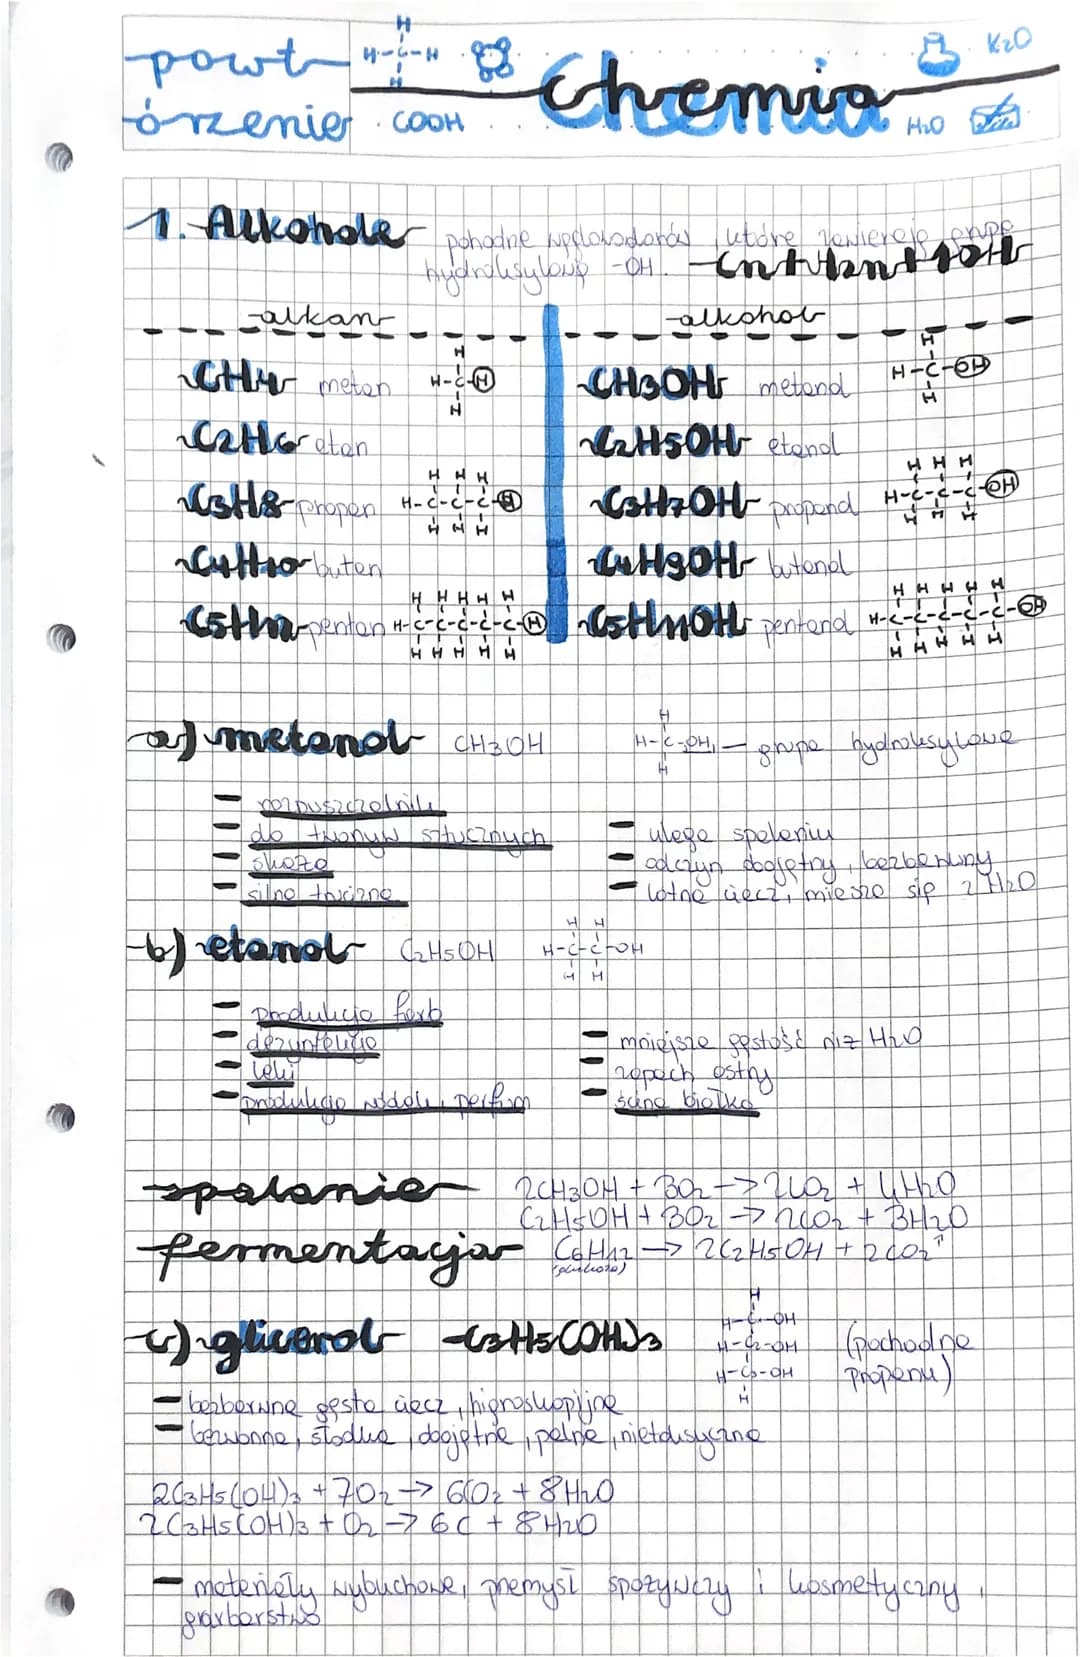 powt
órzenie
H
H-C-H
H
COOH
Chemia
K2O
H2O
1. Alkohole pohodne węglowodorów, które zawierają grupę
hydroksylową -OH. CnH2n+1OH
alkan alkohol
CH4 metan H-C-H H H CH3OH metanol H-C-OH H H
C2H6 etan C2H5OH etanol
C3H8 propan H-C-C-C-H H H H H H H C3H7OH propanol H-C-C-C-OH H H H H H H
C4H10 butan C4H9OH butanol
C5H12 pentan H-C-C-C-C-C-H H H H H H H H H H H C5H11OH pentanol H-C-C-C-C-C-OH H H H H H H H H H H
a) metanol CH3OH H-C-OH H H — grupa hydroksylowa
- rozpuszczalnik
- do tworzyw sztucznych
- skaża
- silna trucizna
- ulega spalaniu
- odczyn obojętny, bezbarwny
- lotna ciecz, miesza się z H2O
b) etanol C2H5OH H-C-C-OH H H H H
- produkcja farb
- dezynfekcja
- leki
- produkcja wódek, perfum
- mniejsza gęstość niż H2O
- zapach ostry
- ścina białko
spalanie 2CH3OH + 3O2 → 2CO2 + 4H2O
C2H5OH + 3O2 → 2CO2 + 3H2O
fermentacja C6H12 → 2C2H5OH + 2CO2↑
(glukoza)
c) glicerol C3H5(OH)3 H H-C-OH H-C-OH H-C-OH H (pochodna
propanu)
- bezbarwna gęsta ciecz, higroskopijna
- bezwonna, słodka, obojętna, palna, nietoksyczna
2C3H5(OH)3 + 7O2 → 6CO2 + 8H2O
2C3H5(OH)3 + O2 → 6C + 8H2O
- materiały wybuchowe, przemysł spożywczy i kosmetyczny,
garbarstwo